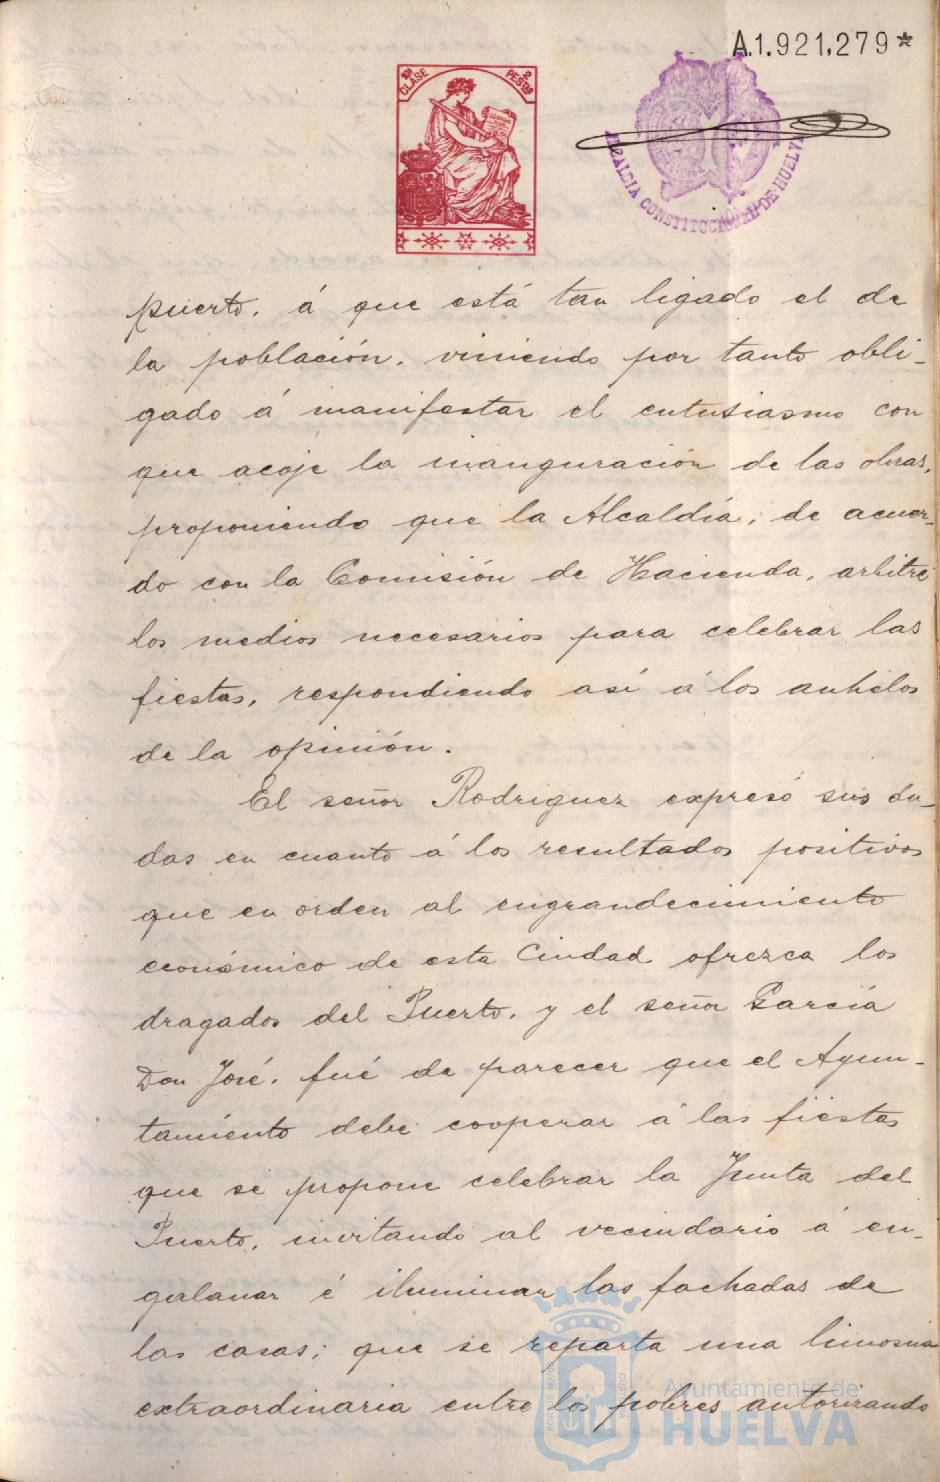 A.1.921,279*
10ª CLASE 2 PESTAS
ALCALDIA CONSTITUCIONAL DE HUELVA
puerto, á que está tan ligado el de
la población, viniendo por tanto obli-
gado á manifestar el entusiasmo con
que acoje la inauguración de las obras,
proponiendo que la Alcaldía, de acuer-
do con la Comisión de Hacienda, arbitre
los medios necesarios para celebrar las
fiestas, respondiendo así á los anhelos
de la opinión.
El señor Rodriguez expresó sus du-
das en cuanto á los resultados positivos
que en orden al engrandecimiento
económico de esta Ciudad ofrezca los
dragados del Puerto, y el señor García
Don José, fué de parecer que el Ayun-
tamiento debe cooperar á las fiestas
que se propone celebrar la Junta del
Puerto, invitando al vecindario á en-
galanar é iluminar las fachadas de
las casas; que se reparta una limosna
extraordinaria entre los pobres autorizando
Ayuntamiento de
HUELVA